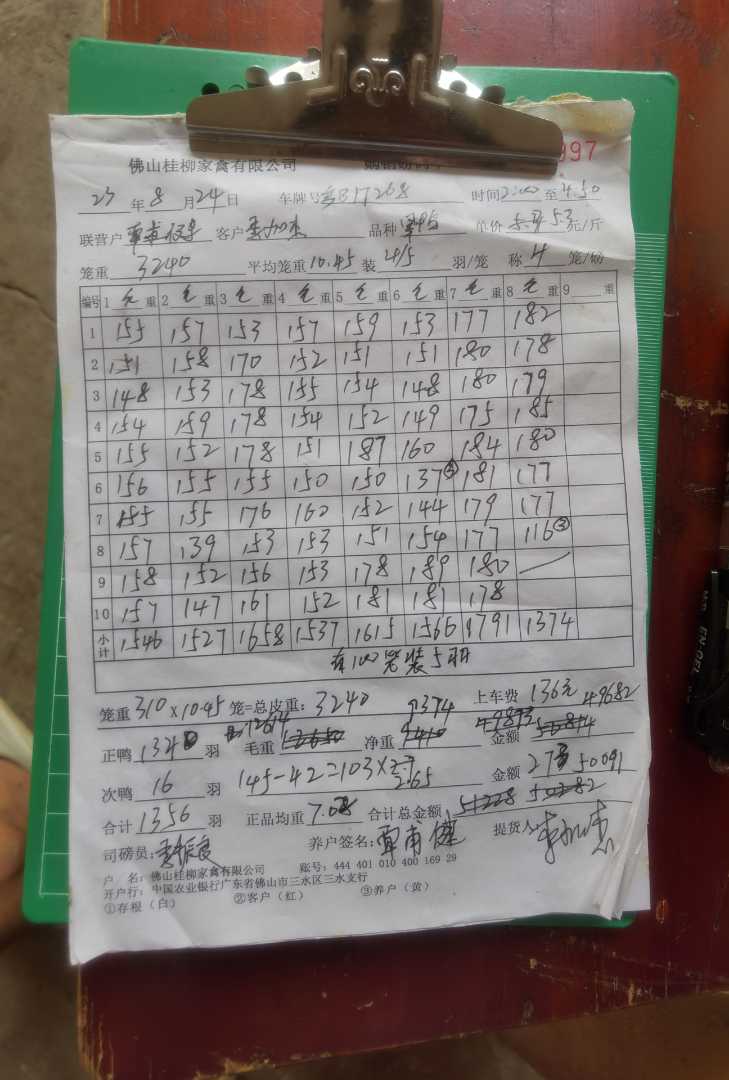 佛山桂柳家禽有限公司 997
23 年 8 月 24 日 车牌号 B17268 时间 2:00 至 4:50
联营户 客户 品种 单价 5.3 元/斤
笼重 3240 平均笼重 10.45 装 4/5 羽/笼 称 4 笼/磅
编号 1 毛 重 2 毛 重 3 毛 重 4 毛 重 5 毛 重 6 毛 重 7 毛 重 8 毛 重 9 重
1 155 157 153 157 159 153 177 182
2 151 158 170 152 151 151 180 178
3 148 153 178 155 154 148 180 179
4 154 159 178 154 152 149 175 185
5 155 152 178 151 187 160 184 180
6 156 155 155 150 150 137③ 181 177
7 155 155 176 160 152 144 179 177
8 157 139 153 153 151 154 177 116③
9 158 152 156 153 178 189 180
10 157 147 161 152 181 181 178
小计 1546 1527 1658 1537 1615 1566 1791 1374
有100笼装5羽
笼重 310×10.45 笼=总皮重: 3240 9374 上车费 136元 49682
正鸭 1340 羽 毛重 12614 净重 金额 49873
次鸭 16 羽 145-42=103× 2.65 金额 273 50091
合计 1356 羽 正品均重 7.0 合计总金额
司磅员: 养户签名: 覃甫健 提货人
户 名: 佛山桂柳家禽有限公司 账号: 444 401 010 400 169 29
开户行: 中国农业银行广东省佛山市三水区三水支行
①存根（白） ②客户（红） ③养户（黄）